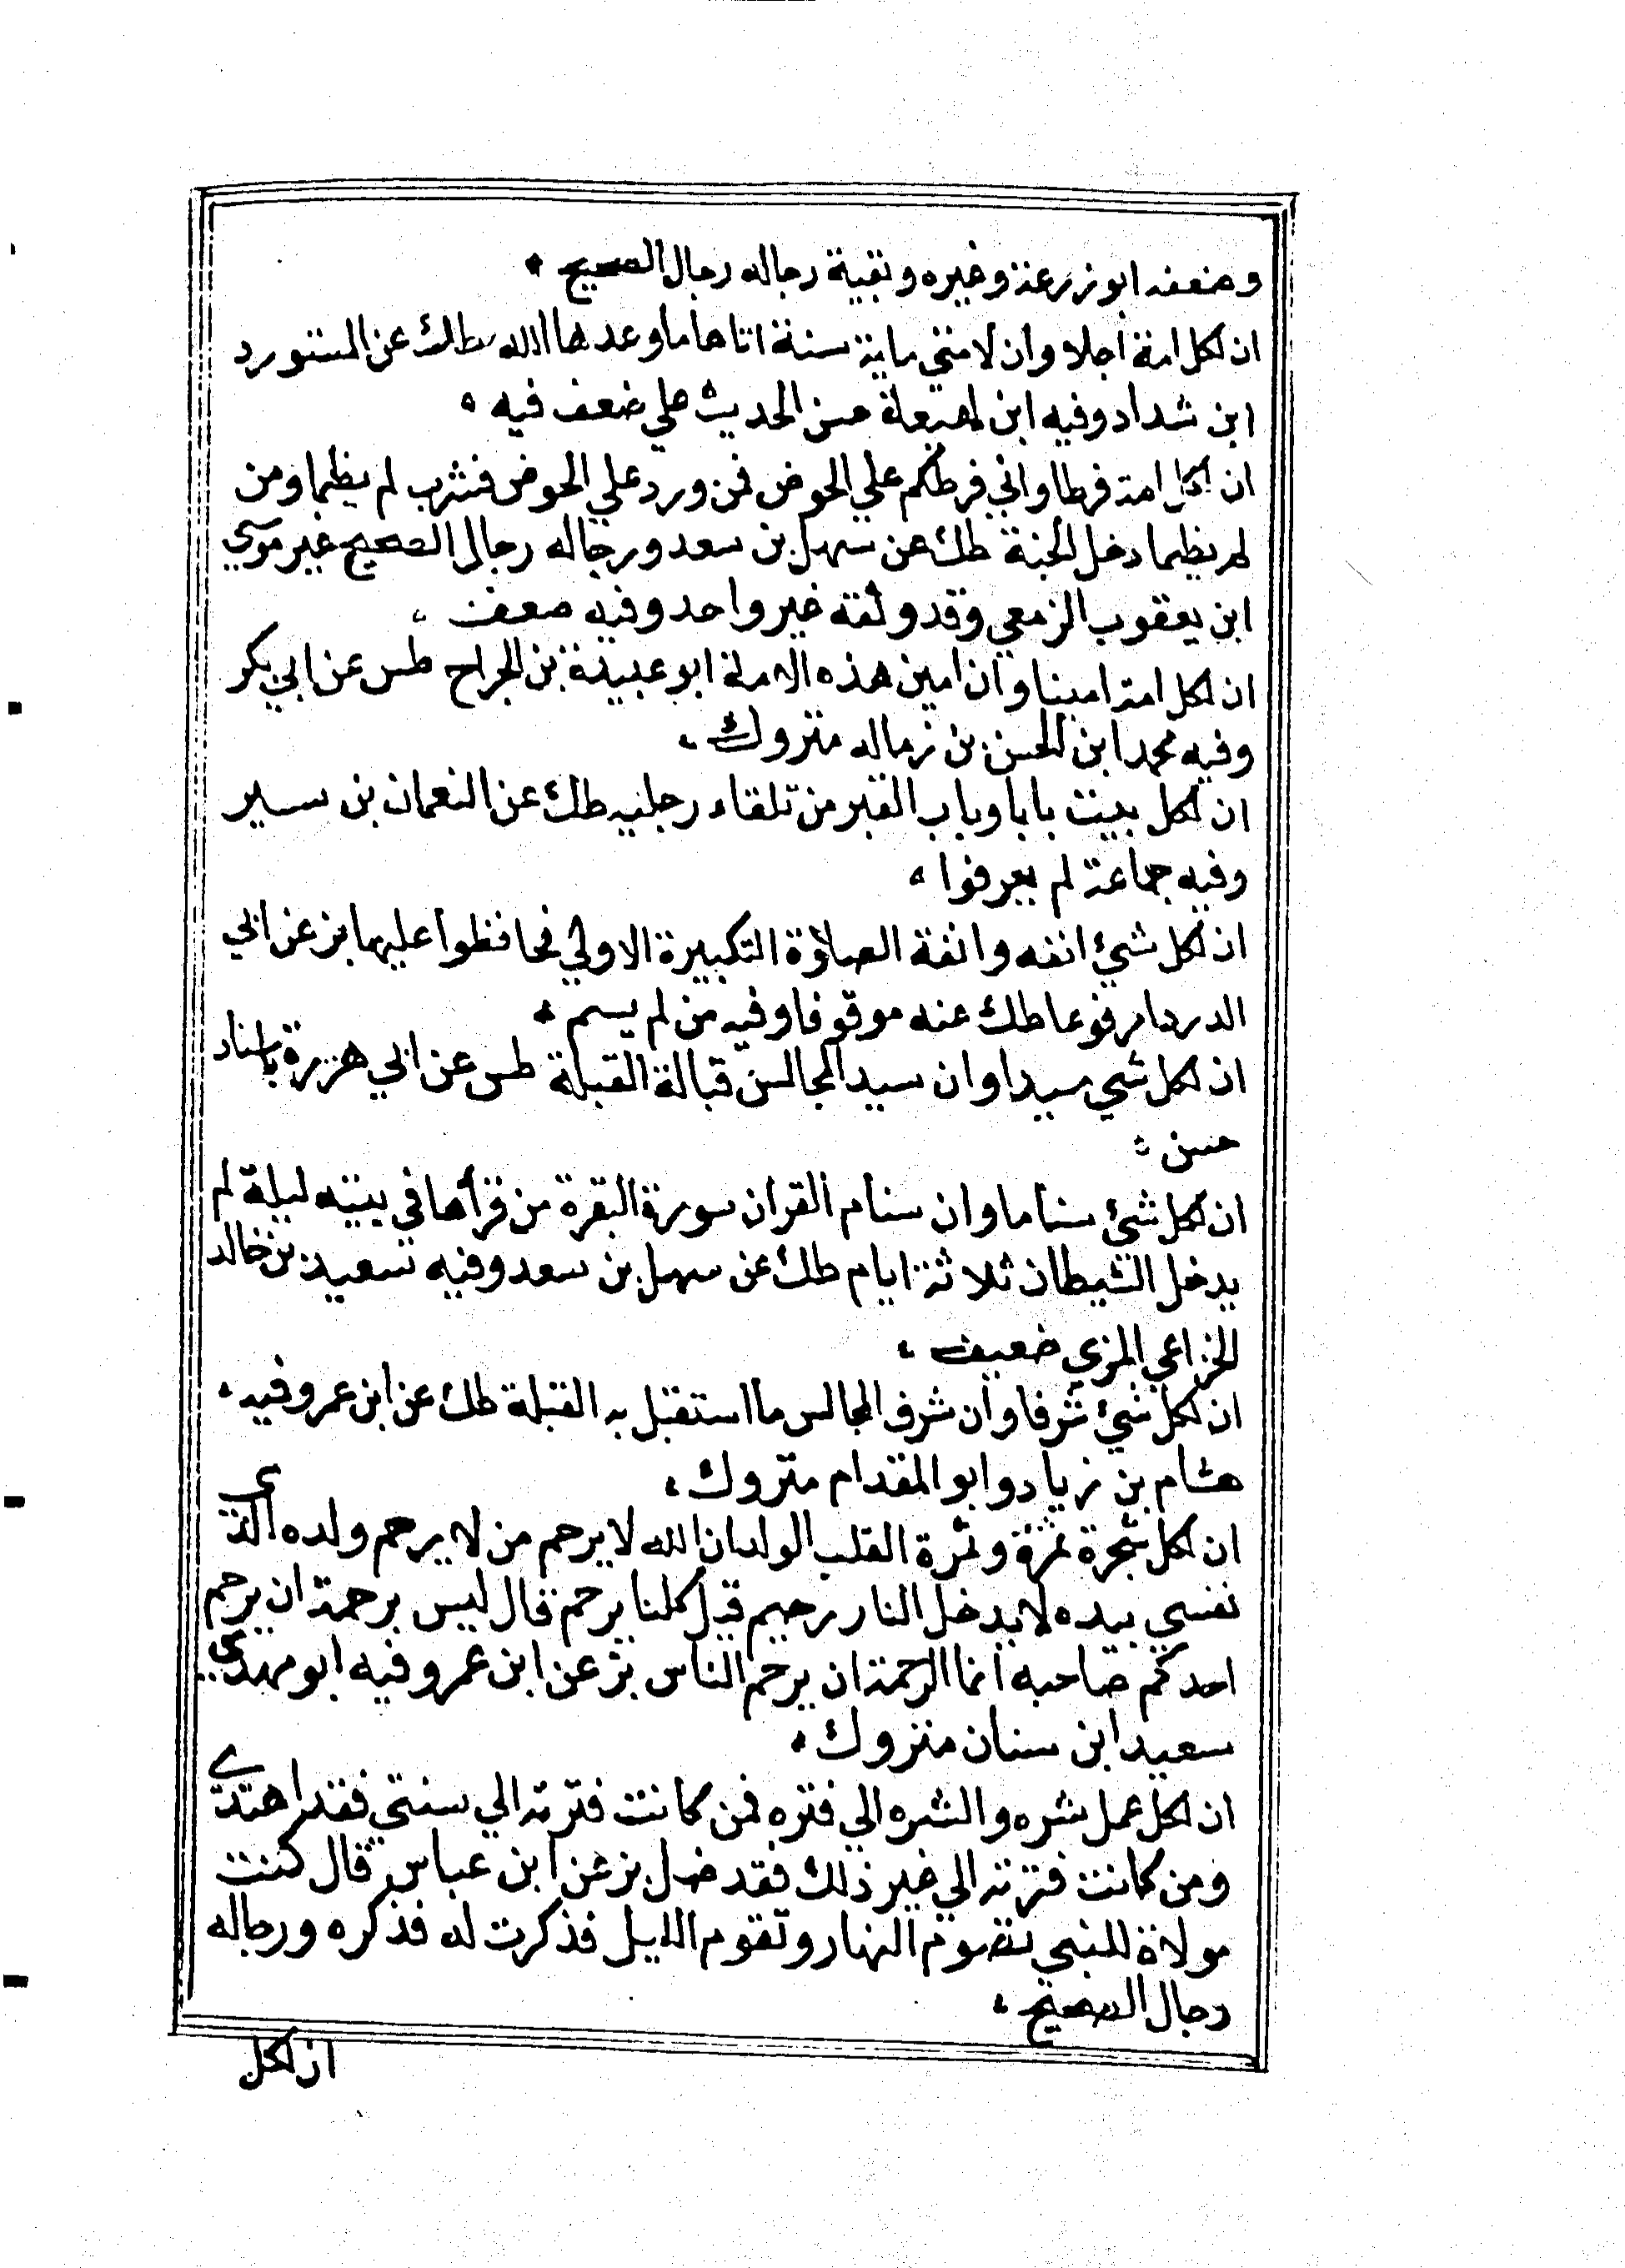 وضعفه ابو زرعة وغيره وبقية رجاله رجال الصحيح
ان لكل امة اجلا وان لامتي ماية سنة اتاها ما وعدها الله طك عن المستورد
ابن شداد وفيه ابن لهيعة حسن الحديث علي ضعف فيه
ان لكل امة فرطا واني فرطكم علي الحوض فمن ورد علي الحوض فشرب لم يظما ومن
لم يظما دخل الجنة طك عن سهل بن سعد ورجاله رجال الصحيح غير موسي
ابن يعقوب الزمعي وقد وثقه غير واحد وفيه ضعف
ان لكل امة امينا وان امين هذه الامة ابو عبيدة بن الجراح طس عن ابي بكر
وفيه محمد ابن الحسن بن زماله متروك
ان لكل بيت بابا وباب القبر من تلقاء رجليه طك عن النعمان بن سير
وفيه جماعة لم يعرفوا
ان لكل شيء انفه وانفة الصلاة التكبيرة الاولي فحافظوا عليها بز عن ابي
الدرداء مرفوعا طك عنه موقوفا وفيه من لم يسم
ان لكل شي سيدا وان سيد المجالس قبالة القبلة طس عن ابي هريرة باسناد
حسن
ان لكل شيء سناما وان سنام القران سورة البقرة من قرأها في بيته ليلة لم
يدخل الشيطان ثلاثة ايام طك عن سهل بن سعد وفيه سعيد بن خالد
الخزاعي المزي ضعيف
ان لكل شيء شرفا وان شرف المجالس ما استقبل به القبلة طك عن ابن عمر وفيه
هشام بن زياد وابو المقدام متروك
ان لكل شجرة ثمرة وثمرة القلب الولد ان الله لا يرحم من لا يرحم ولده الذي
نفسي بيده لا يدخل النار رحيم قيل كلنا يرحم قال ليس برحمة ان يرحم
احدكم صاحبه انما الرحمة ان يرحم الناس بز عن ابن عمر وفيه ابو مهدي
سعيد ابن سنان متروك
ان لكل عمل شره والشره الي فتره فمن كانت فترته الي سنتي فقد اهتدي
ومن كانت فترته الي غير ذلك فقد ضل بز عن ابن عباس قال كنت
مولاة للنبي تصوم النهار وتقوم الليل فذكرت له فذكره ورجاله
رجال الصحيح
ان لكل